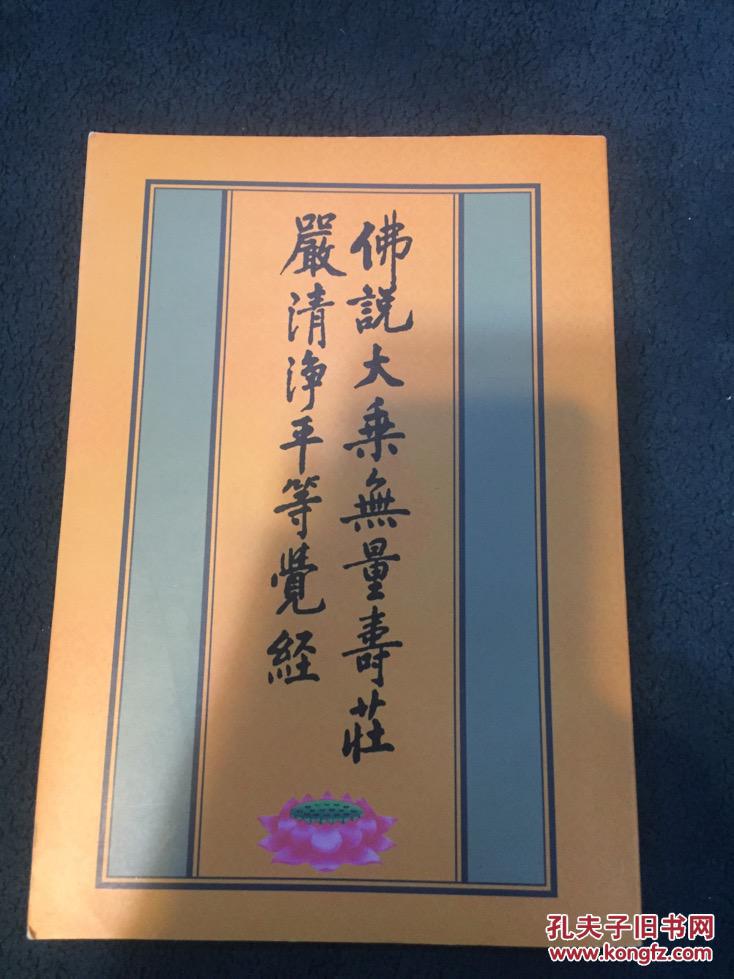 佛説大乗無量壽莊
嚴清淨平等覺経
孔夫子旧书网
www.kongfz.com